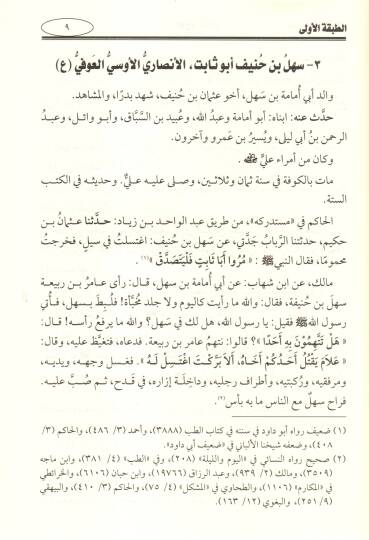 الطبقة الأولى
٩
٣- سهلُ بن حُنيف أبو ثابت، الأنصاريُّ الأوسيُّ العوفيُّ (ع)
والد أبي أُمامة بن سَهل، أخو عثمان بن حُنيف، شهد بدرًا، والمشاهد.
حدَّث عنه: ابناه: أبو أمامة وعبدُ الله، وعُبيد بن السَّبَّاق، وأبو وائل، وعبدُ
الرحمن بنُ أبي ليلى، ويُسيرُ بن عَمرو وآخرون.
وكان من أمراء عليٍّ ﷺ.
مات بالكوفة في سنة ثمان وثلاثين، وصلى عليه عليٌّ. وحديثه في الكتب
الستة.
الحاكم في «مستدركه»، من طريق عبد الواحد بن زياد: حدَّثنا عثمانُ بن
حكيم، حدثتنا الرَّبابُ جَدَّتي، عن سَهل بن حُنيف: اغتسلتُ في سيلٍ، فخرجتُ
محمومًا، فقال النبيُّ ﷺ: «مُرُوا أَبَا ثَابِتٍ فَلْيَتَصَدَّقْ»(١).
مالك، عن ابن شهاب: عن أبي أُمامة بن سهل، قال: رأى عامرُ بن ربيعة
سهلَ بن حُنيفة، فقال: والله ما رأيت كاليوم ولا جلد مُخبَّأة! فلُبِطَ بسهل، فأُتي
رسول الله ﷺ فقيل: يا رسول الله، هل لك في سَهل؟ والله ما يرفعُ رأسه! قال:
«هَلْ تَتَّهِمُونَ بِهِ أَحَدًا»؟ قالوا: نتهمُ عامر بن ربيعة. فدعاه، فتغيَّظ عليه، وقال:
«عَلَامَ يَقْتُلُ أَحَدُكُمْ أَخَاهُ، أَلَا بَرَّكْتَ اغْتَسِلْ لَهُ». فغسل وجهه، ويديه،
ومرفقيه، ورُكبتيه، وأطراف رجليه، وداخِلَة إزاره، في قَدح، ثم صُبَّ عليه.
فراح سهلٌ مع الناس ما به بأس(٢).
(١) ضعيف رواه أبو داود في سننه في كتاب الطب (٣٨٨٨)، وأحمد (٣/ ٤٨٦)، والحاكم (٣/
٤٠٨)، وضعفه شيخنا الألباني في «ضعيف أبي داود».
(٢) صحيح رواه النسائي في «اليوم والليلة» (٢٠٨)، وفي «الطب» (٤/ ٣٨١)، وابن ماجه
(٣٥٠٩)، ومالك (٢/ ٩٣٩)، وعبد الرزاق (١٩٧٦٦)، وابن حبان (٦١٠٦)، والخرائطي
في «المكارم» (١١٠٦)، والطحاوي في «المشكل» (٤/ ٧٥)، والحاكم (٣/ ٤١٠)، والبيهقي
(٩/ ٢٥١)، والبغوي (١٢/ ١٦٣).